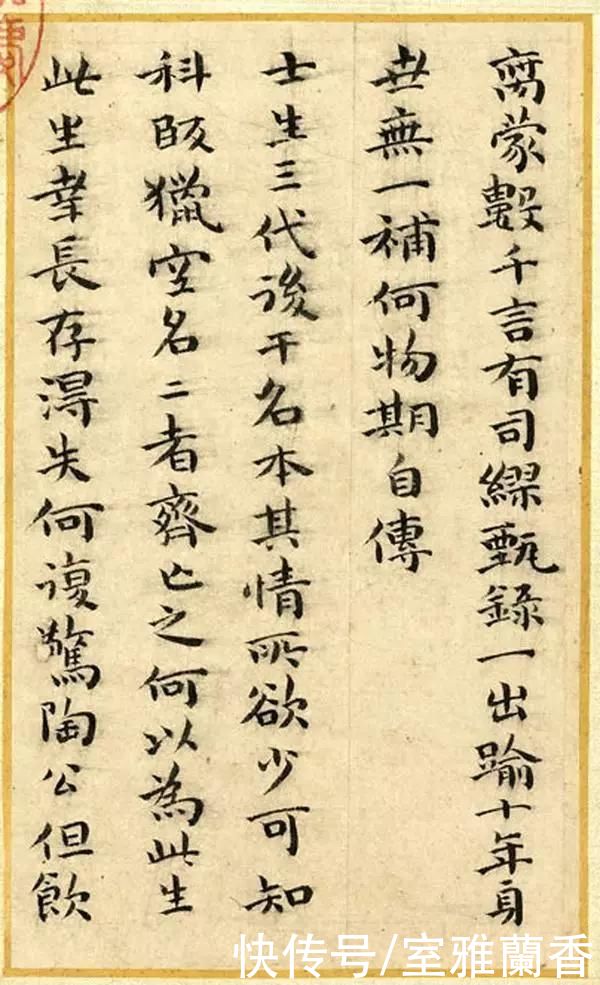 蒙數千言有司繆甄錄一出踰十年身
世無一補何物期自傳
士生三代後干名本其情所欲少可知
科取獵空名二者齊亡之何以為此生
此生幸長存得失何復驚陶公但飲
快传号/室雅蘭香